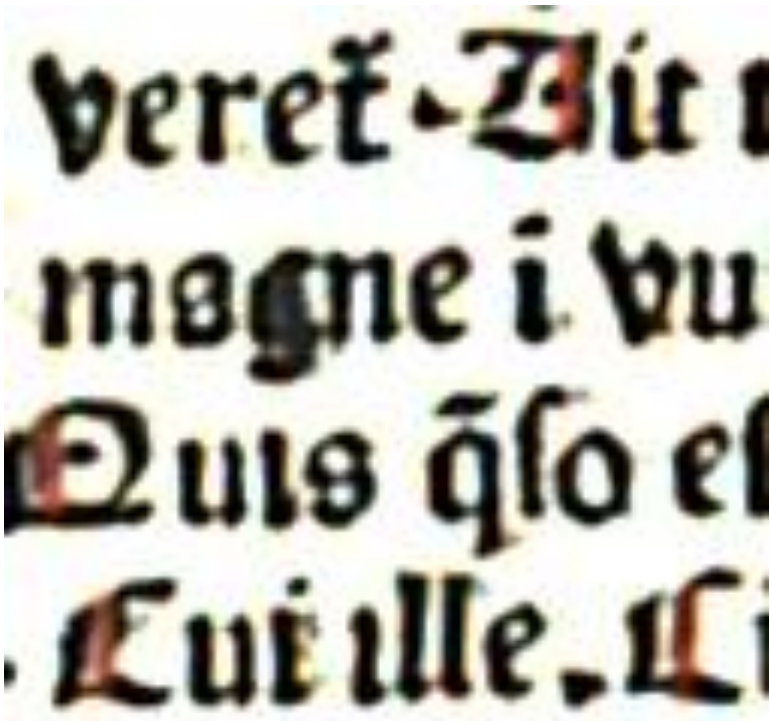 veret̃. Ait
magne i vu
Quis q̃so es
Cui ille. Ci